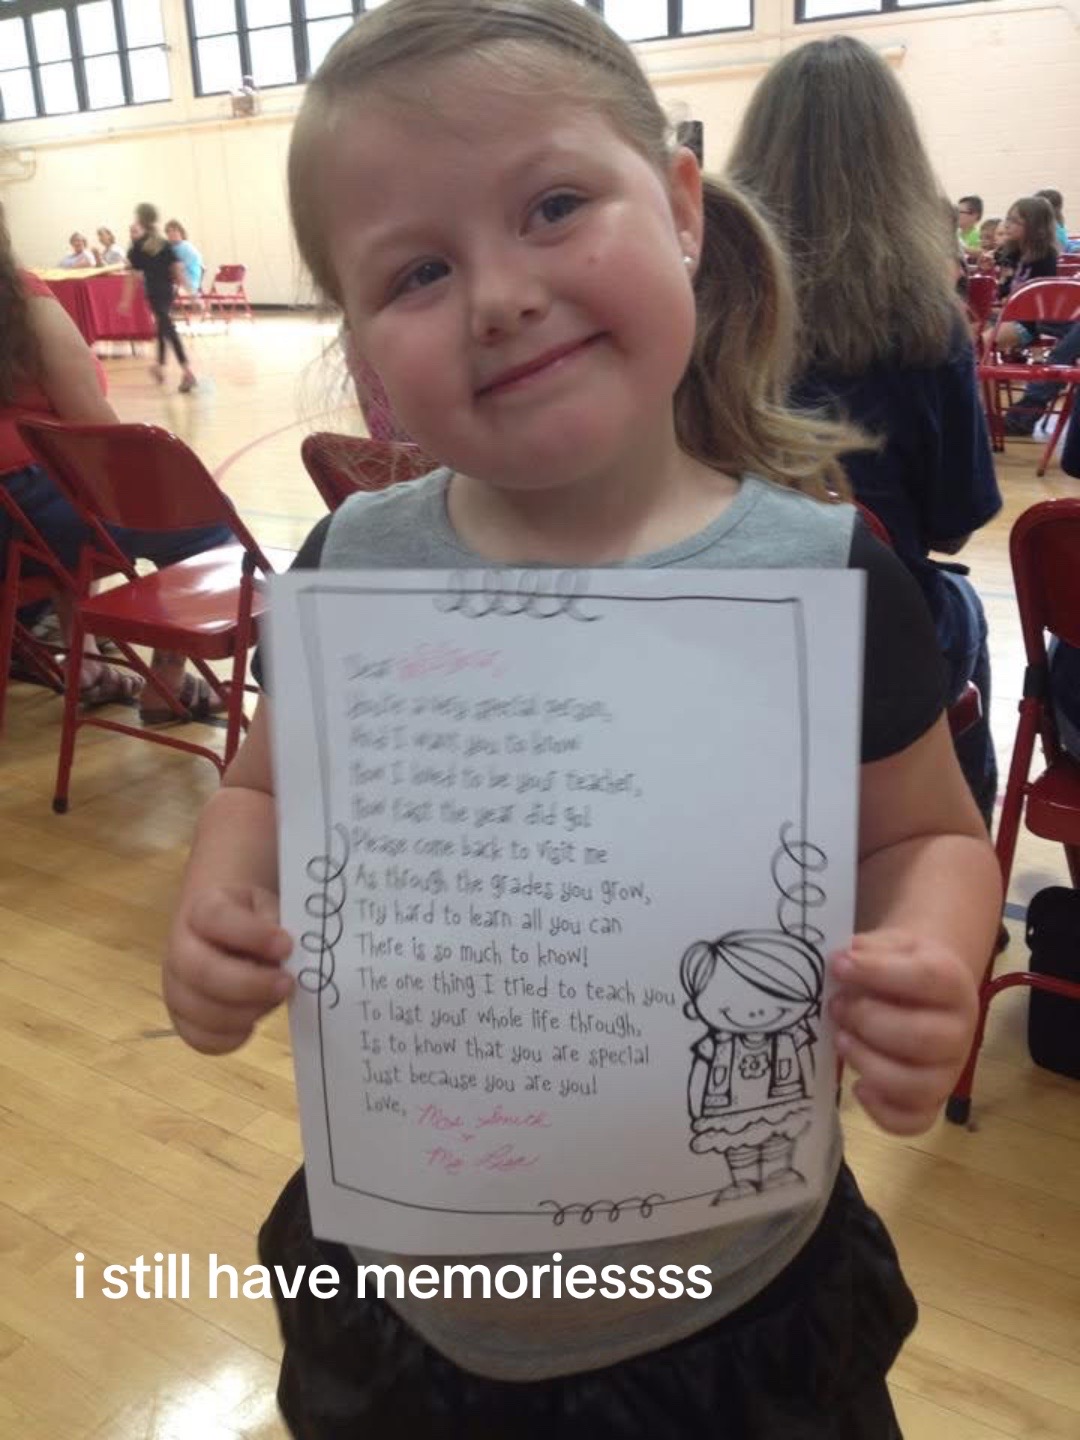 Dear
You're a very special person,
And I want you to know
How I loved to be your teacher,
How fast the year did go!
Please come back to visit me
As through the grades you grow,
Try hard to learn all you can
There is so much to know!
The one thing I tried to teach you
To last your whole life through,
Is to know that you are special
Just because you are you!
Love, Mrs. Smith
i still have memoriessss